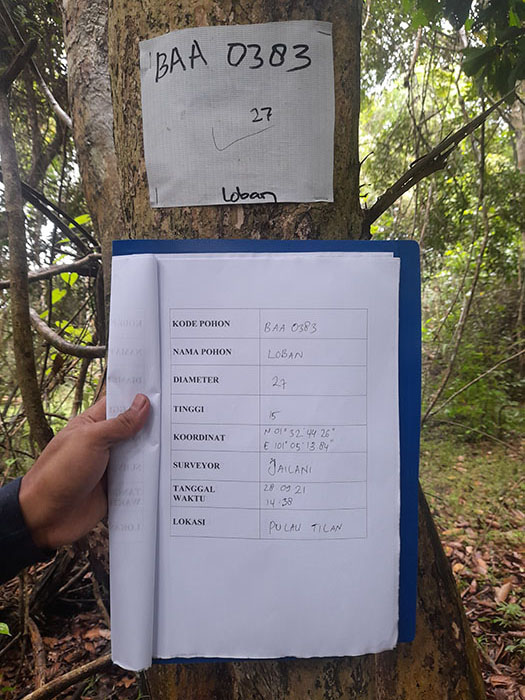 BAA 0383
27
Loban
KODE POHON BAA 0383
NAMA POHON LOBAN
DIAMETER 27
TINGGI 15
KOORDINAT N.01° 32' 44.26"
E 101° 05' 13.84"
SURVEYOR JAILANI
TANGGAL 28 09 21
WAKTU 14:38
LOKASI PULAU TILAN